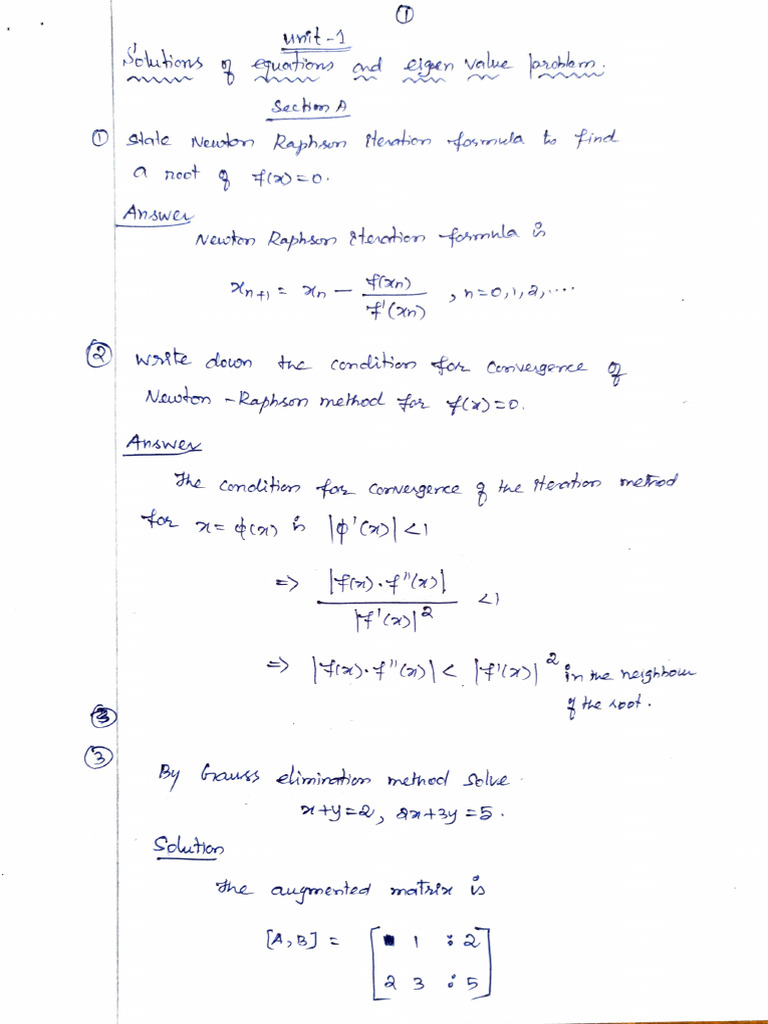 ①
Unit-1
Solutions of equations and eigen value problem.
Section A
① State Newton Raphson iteration formula to find
a root of f(x)=0.
Answer
Newton Raphson iteration formula is
xₙ₊₁ = xₙ − f(xₙ)/f'(xₙ) , n=0,1,2,....
② Write down the condition for convergence of
Newton-Raphson method for f(x)=0.
Answer
The condition for convergence of the iteration method
for x=ϕ(x) is |ϕ'(x)|<1
=> |f(x)·f''(x)| / |f'(x)|² <1
=> |f(x)·f''(x)| < |f'(x)|² in the neighbour
of the root.
③
By Gauss elimination method solve
x+y=2, 2x+3y=5.
Solution
The augmented matrix is
[A,B] = [ 1 : 2
2 3 : 5 ]